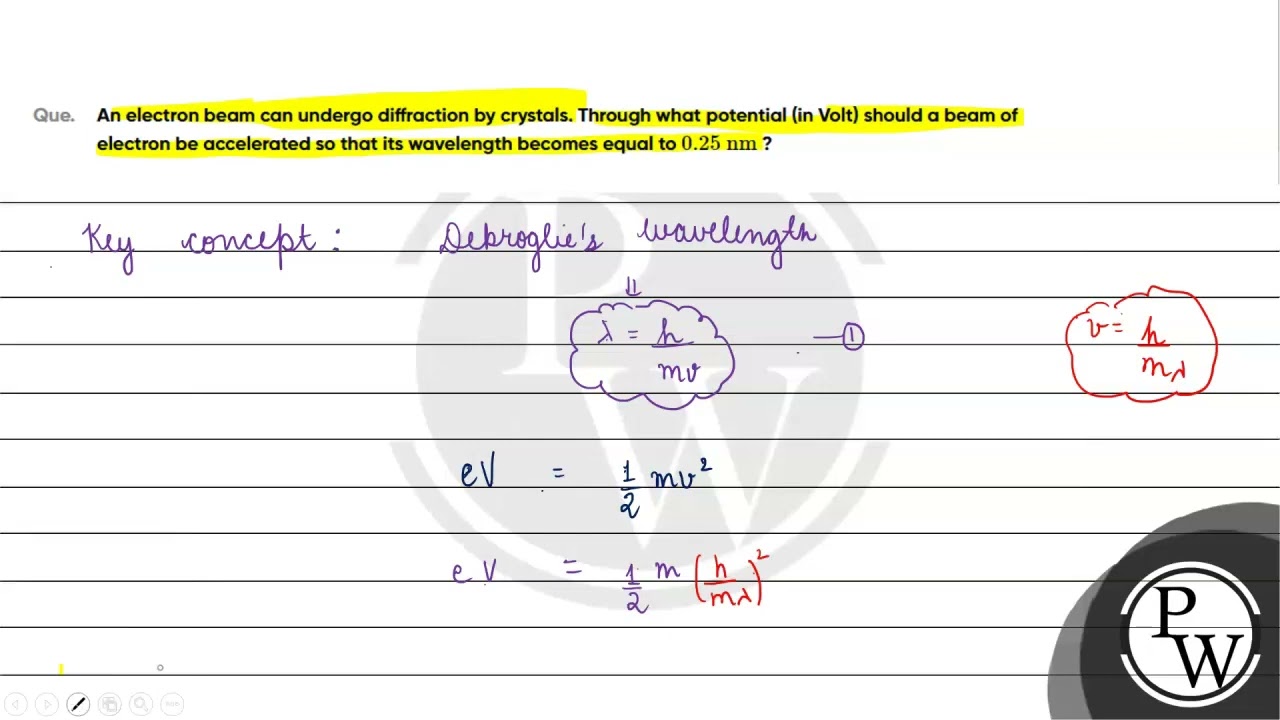 Que. An electron beam can undergo diffraction by crystals. Through what potential (in Volt) should a beam of
electron be accelerated so that its wavelength becomes equal to 0.25 nm ?
Key concept : Debroglie's wavelength
⇓
λ = h/mv —①
v = h/mλ
eV = 1/2 mv²
eV = 1/2 m (h/mλ)²
P
W